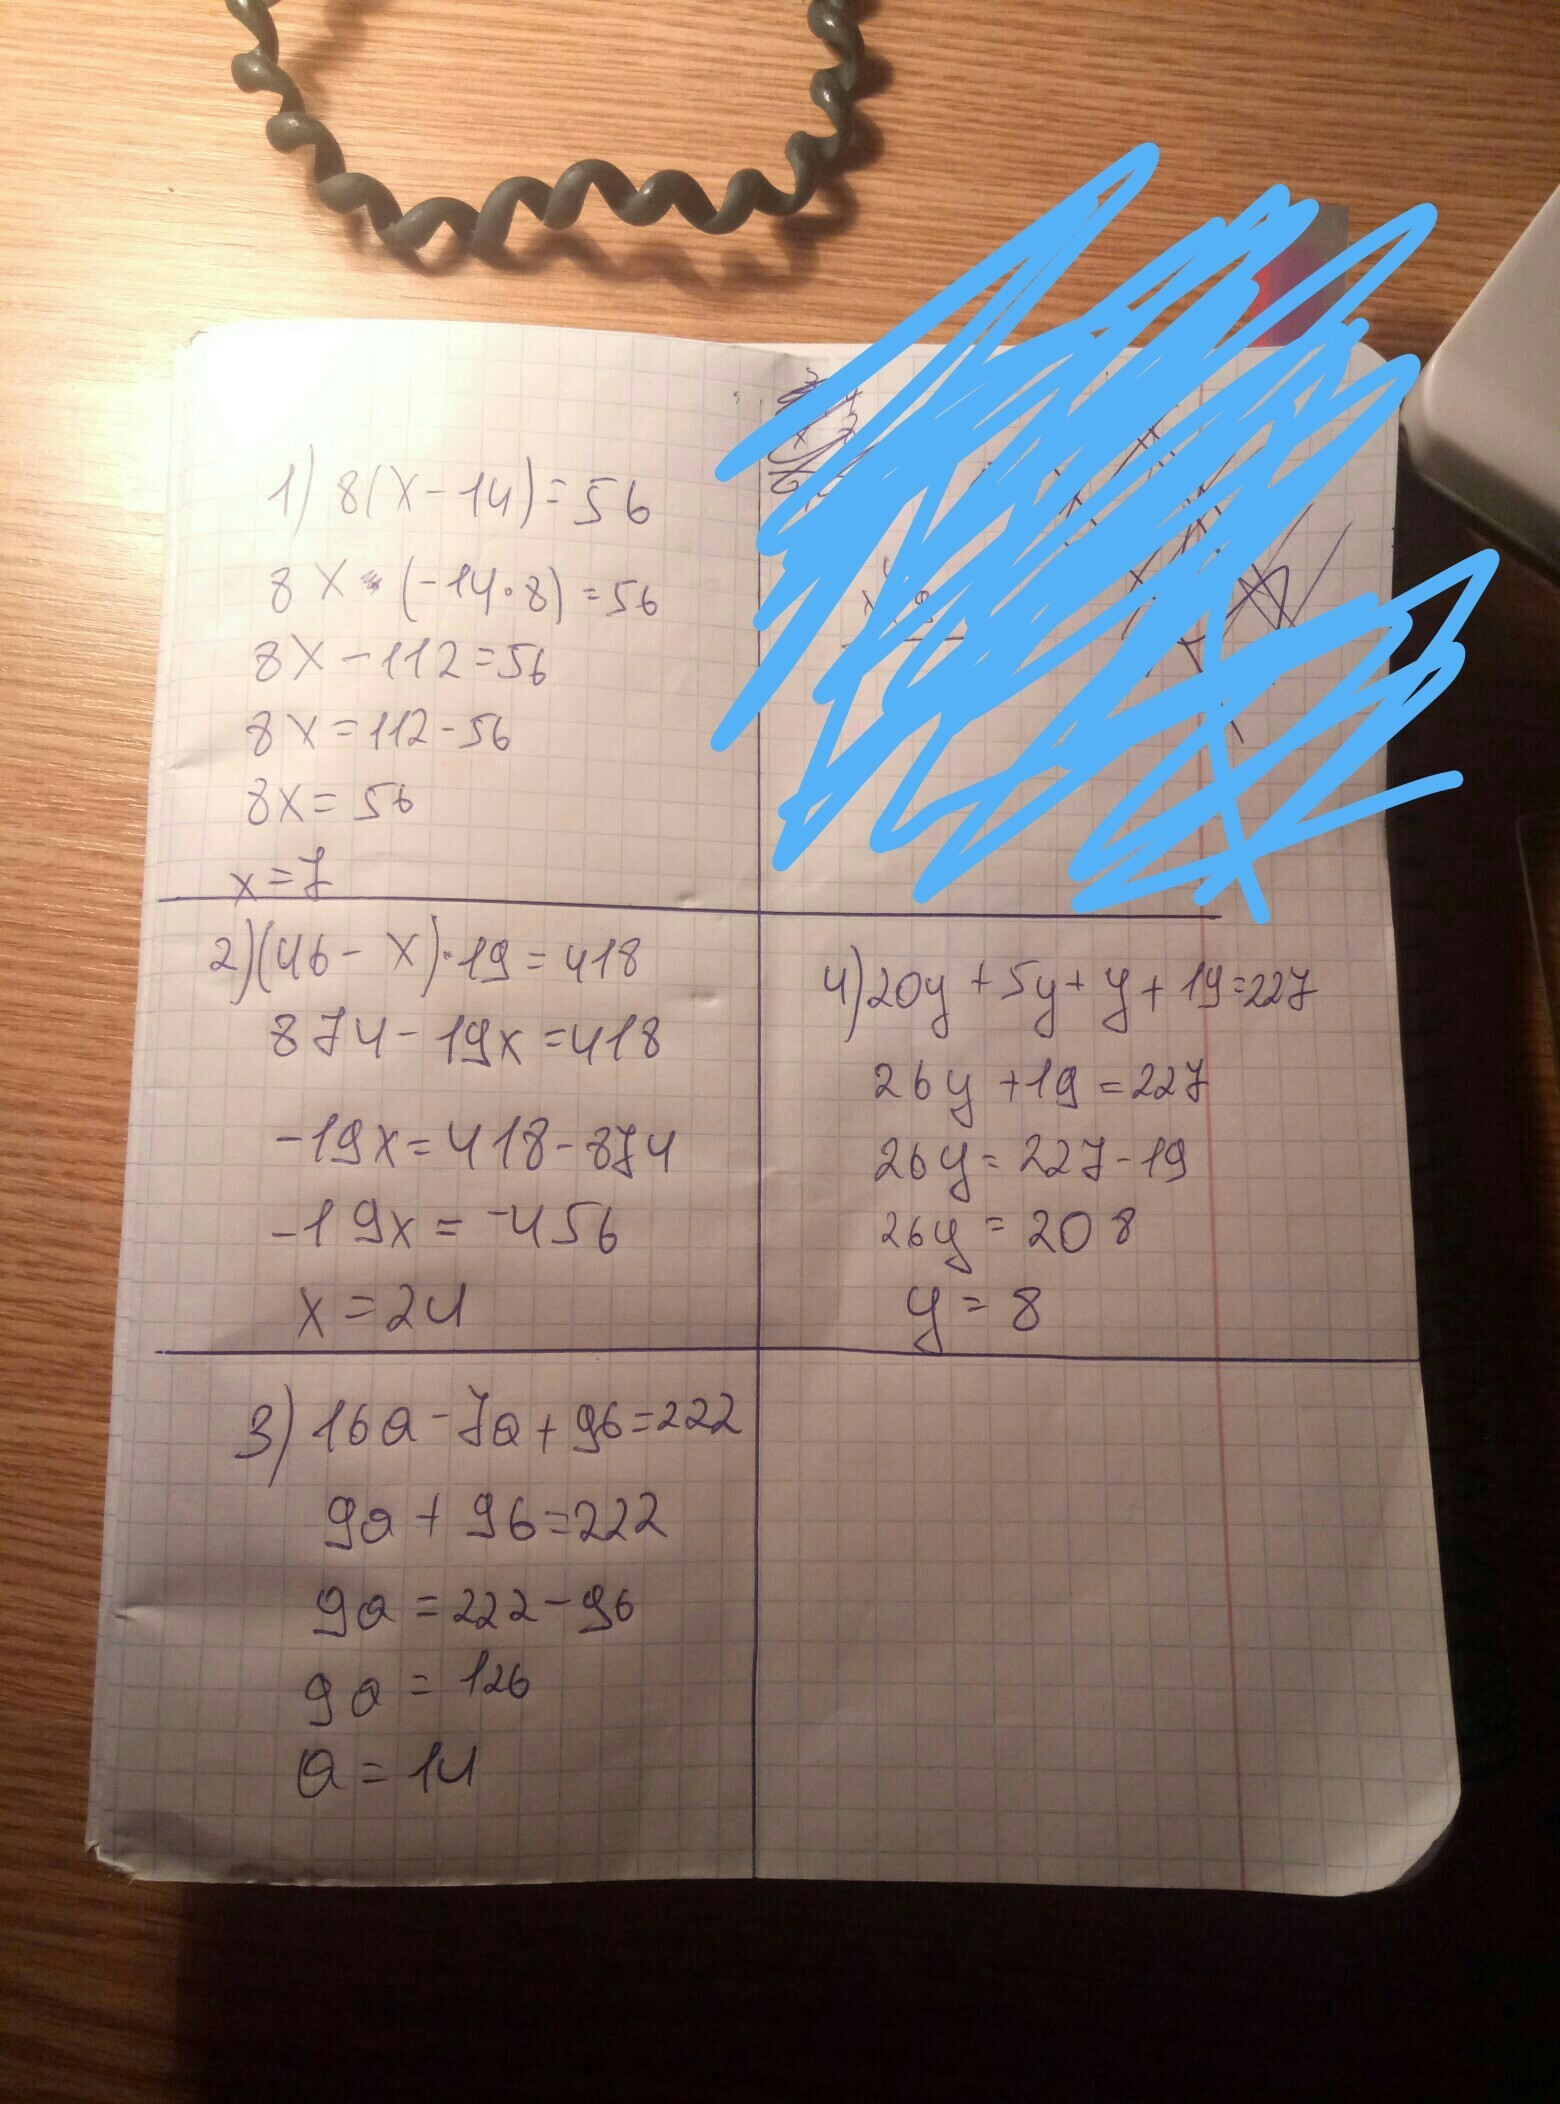 1) 8(x-14)=56
8x (-14·8)=56
8x-112=56
8x=112-56
8x=56
x=7
2)(46-x)·19=418
874-19x=418
-19x=418-874
-19x=-456
x=24
3) 16a-7a+96=222
9a+96=222
9a=222-96
9a=126
a=14
4)20y+5y+y+19=227
26y+19=227
26y=227-19
26y=208
y=8